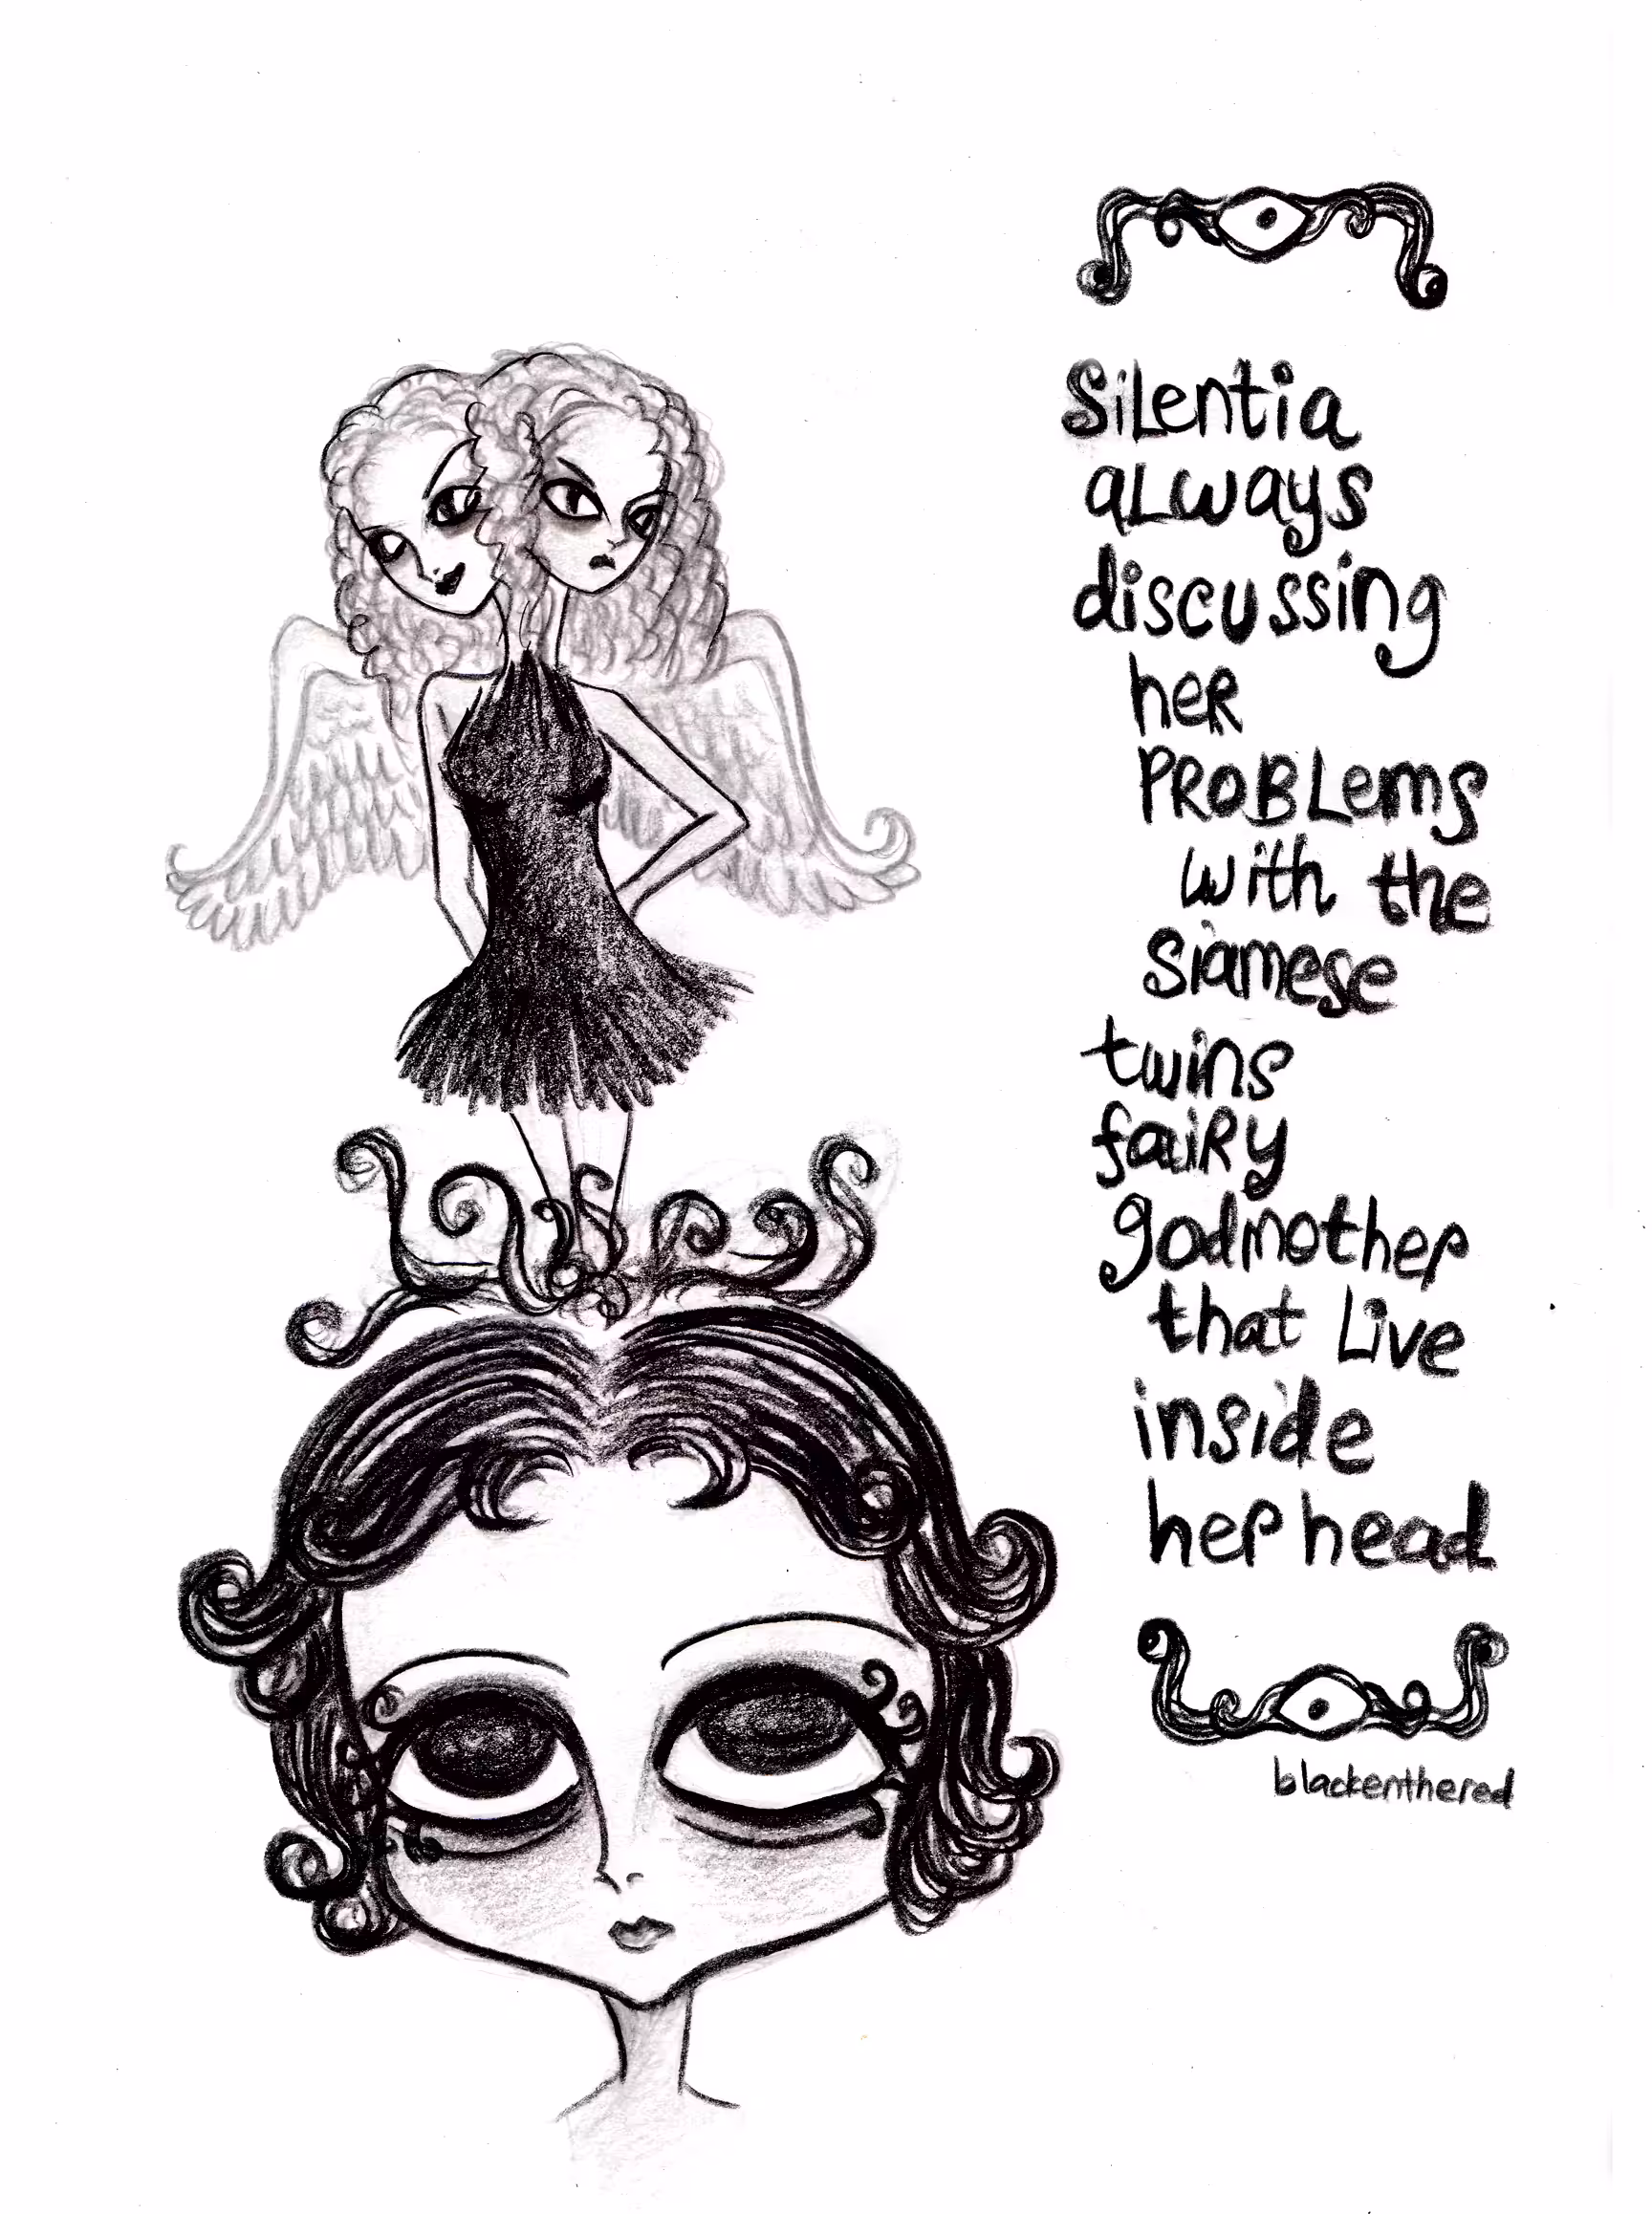 SiLentia
aLways
discussing
heR
PRoBLems
with the
Siamese
twins
faiRy
godmother
that Live
inside
her head
blackenthered